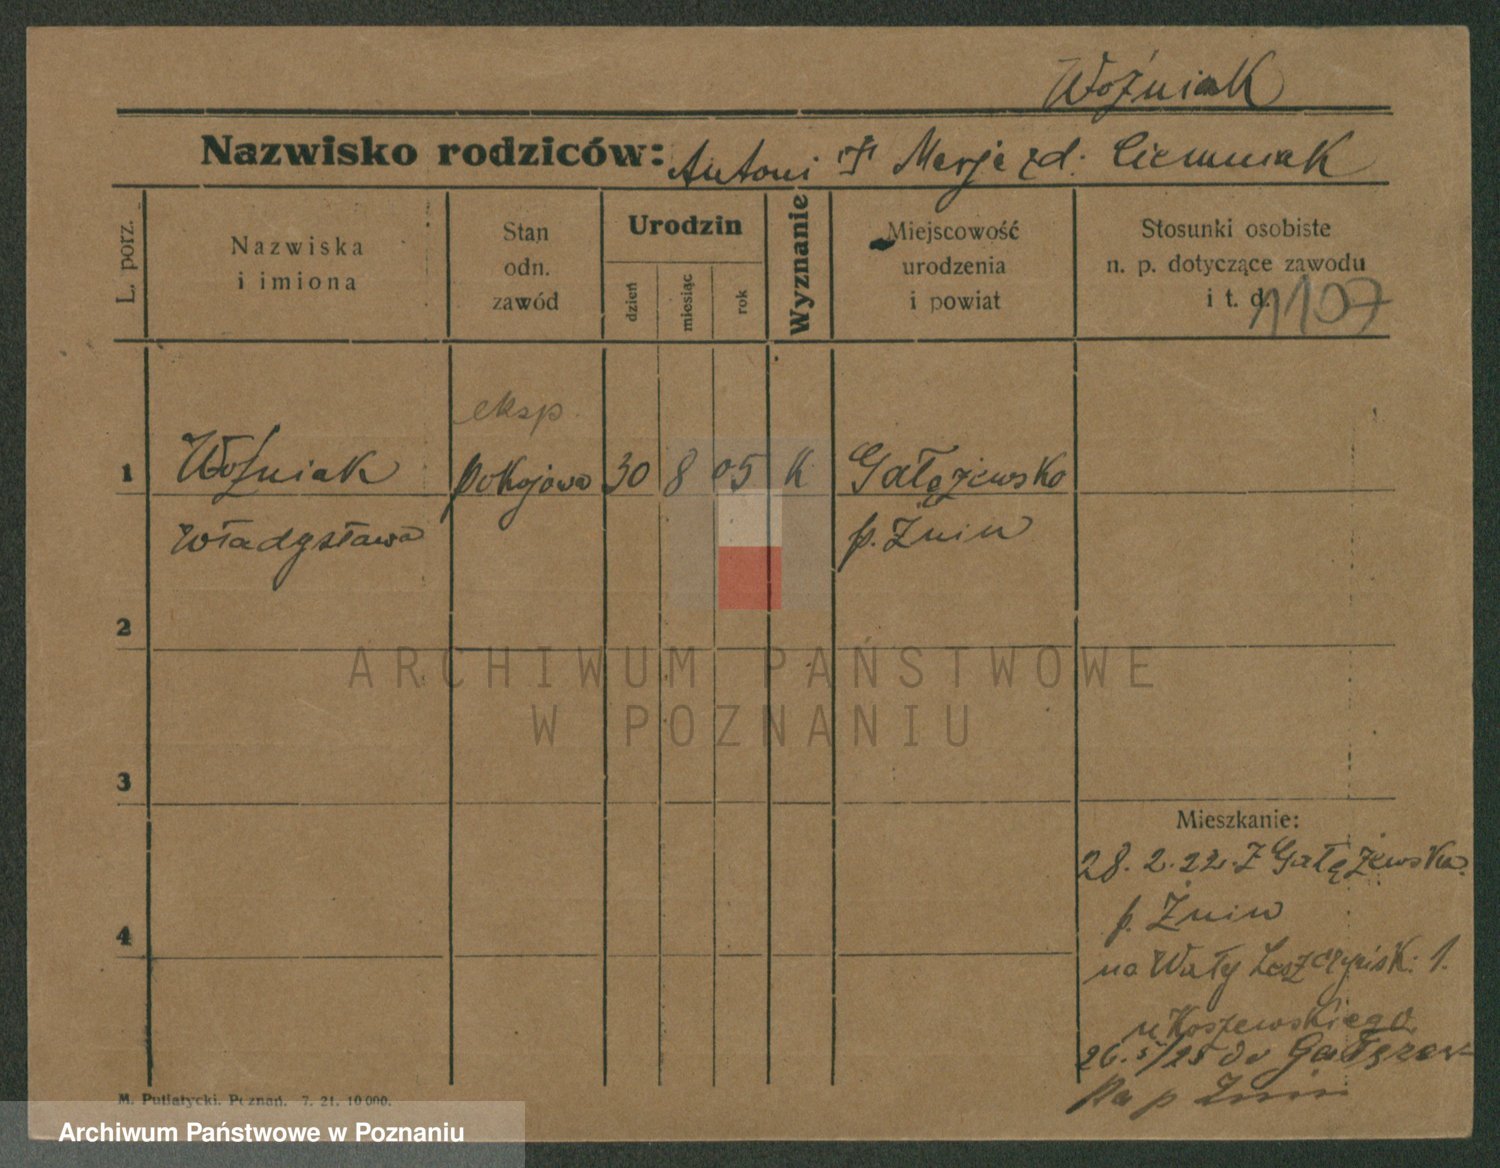 Woźniak
Nazwisko rodziców: Antoni i Marja zd. Ciemniak
L. porz.
Nazwiska
i imiona
Stan
odn.
zawód
Urodzin
dzień
miesiąc
rok
Wyznanie
Miejscowość
urodzenia
i powiat
Stosunki osobiste
n. p. dotyczące zawodu
i t. d.
1107
eksp.
1 Woźniak pokojowa 30 8 05 K Gałązewsko
Władysława p. Żnin
2
ARCHIWUM PAŃSTWOWE
W POZNANIU
3
Mieszkanie:
28. 2. 22. z Gałęzewska
p. Żnin
4
na Wały Leszczyńsk. 1.
u Koszewskiego
26. 5/25 do Gałęzew-
ka p Żnin
M. Putiatycki. Poznań. 7. 21. 10 000.
Archiwum Państwowe w Poznaniu